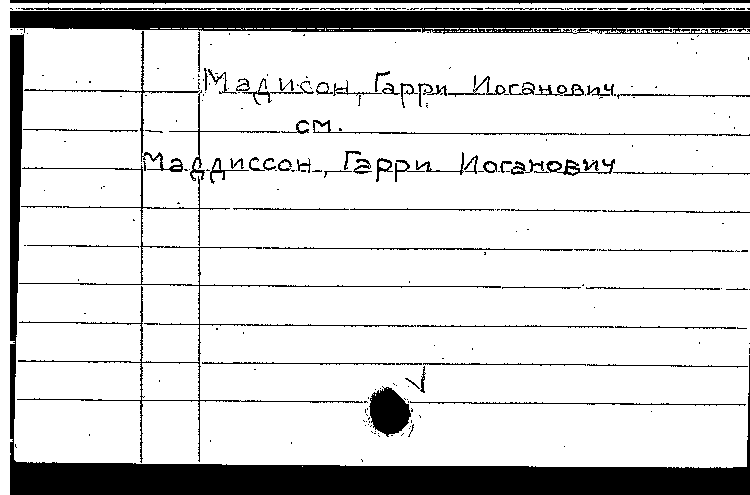 Мадисон, Гарри Иоганович
см.
Маддиссон, Гарри Иоганович